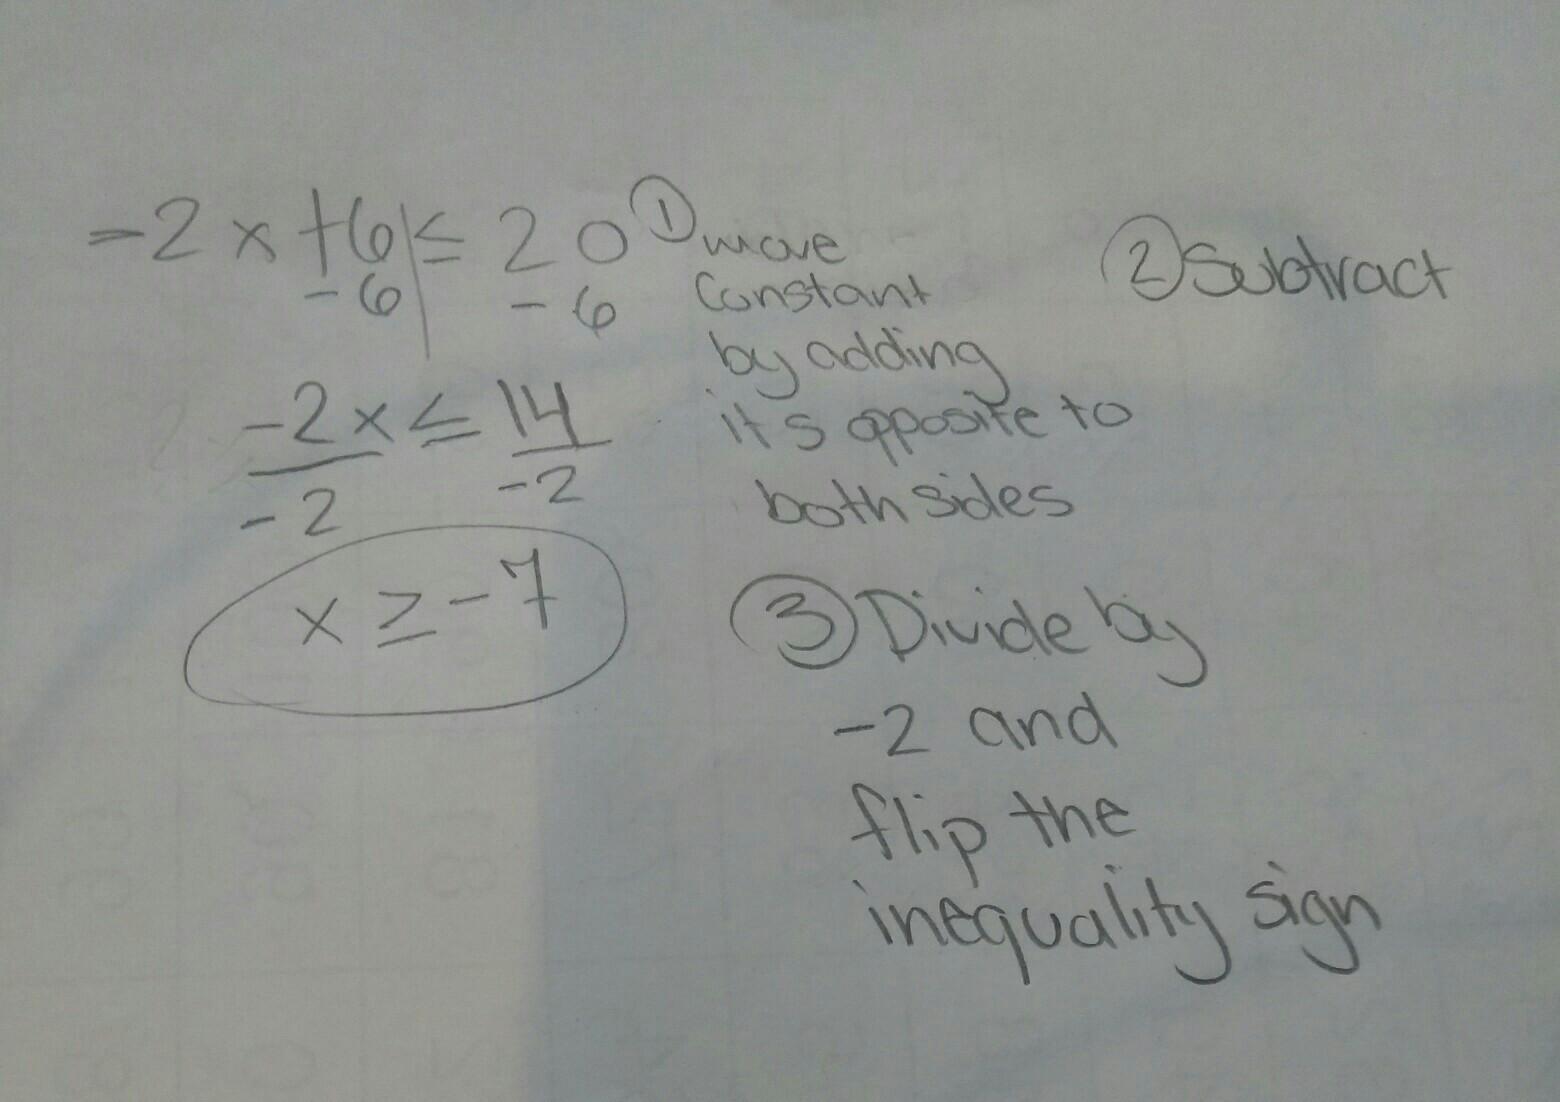 -2x+6≤ 20
-6 -6
-2x ≤ 14
-2 -2
x ≥ -7
① move
Constant
by adding
it's opposite to
both sides
② Subtract
③ Divide by
-2 and
flip the
inequality sign